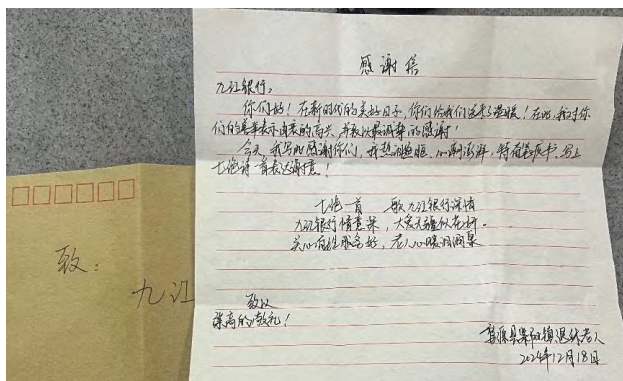 感谢信
九江银行:
你们好!在新时代的美好日子,你们给我们送来了温暖!在此,我对你
们的善举表示由衷的高兴,并表以最诚挚的感谢!
今天,我写此感谢你们,我热泪盈眶,心潮澎湃,特有笔书,写上
七绝诗一首表达谢意!
七绝一首 歌九江银行深情
九江银行情意深,大爱无疆似花
关心百姓服务好,老人心暖
致以
崇高的敬礼!
县 镇退休老人
2024年12月18日
致:
九江